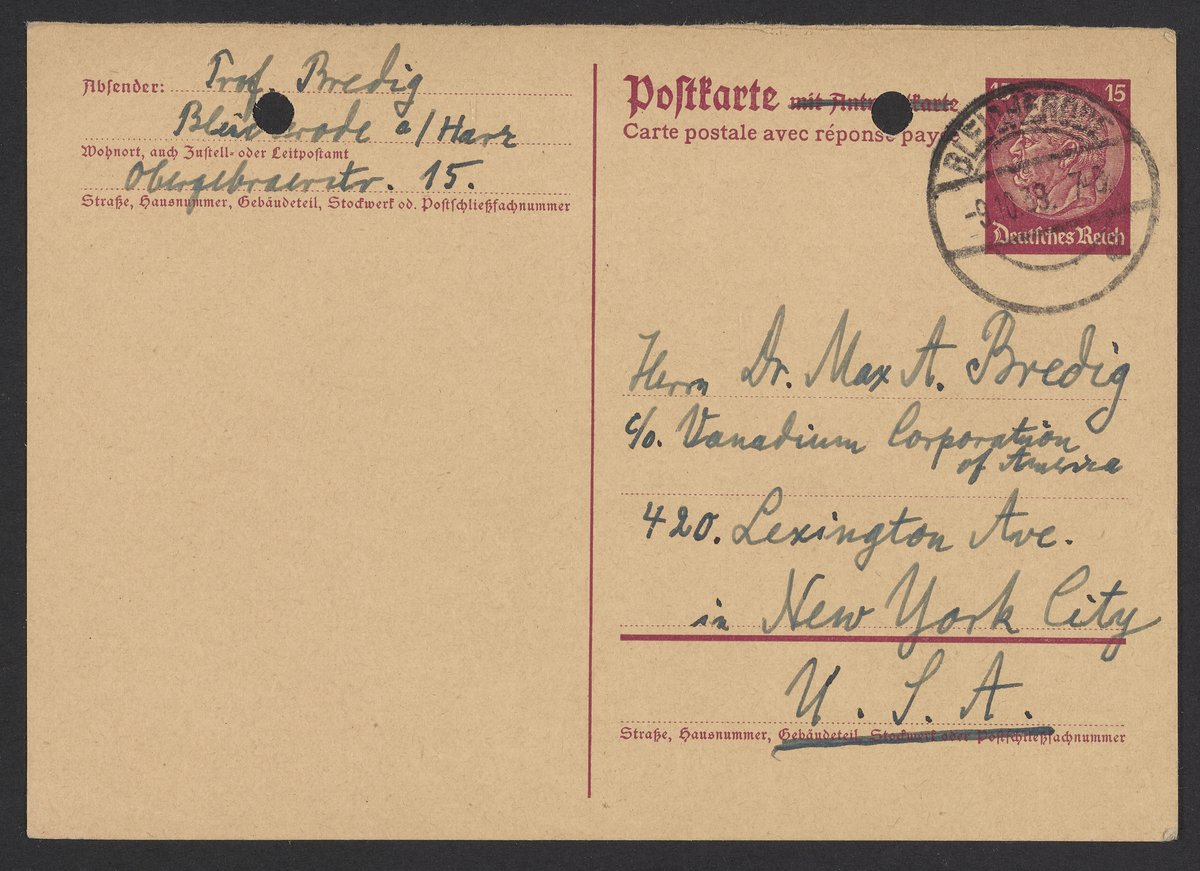 Absender: Prof. Bredig
a/Harz
Wohnort, auch Zustell- oder Leitpostamt
Obergebraerstr. 15.
Straße, Hausnummer, Gebäudeteil, Stockwerk od. Postschließfachnummer
Postkarte
Carte postale avec réponse
15 15
BLEICHERODE
7-8
Deutsches Reich
Herrn Dr. Max A. Bredig
c/o. Vanadium Corporation
of America
420. Lexington Ave.
in New York City
U. S. A.
Straße, Hausnummer, Gebäudeteil, Stockwerk oder Postschließfachnummer